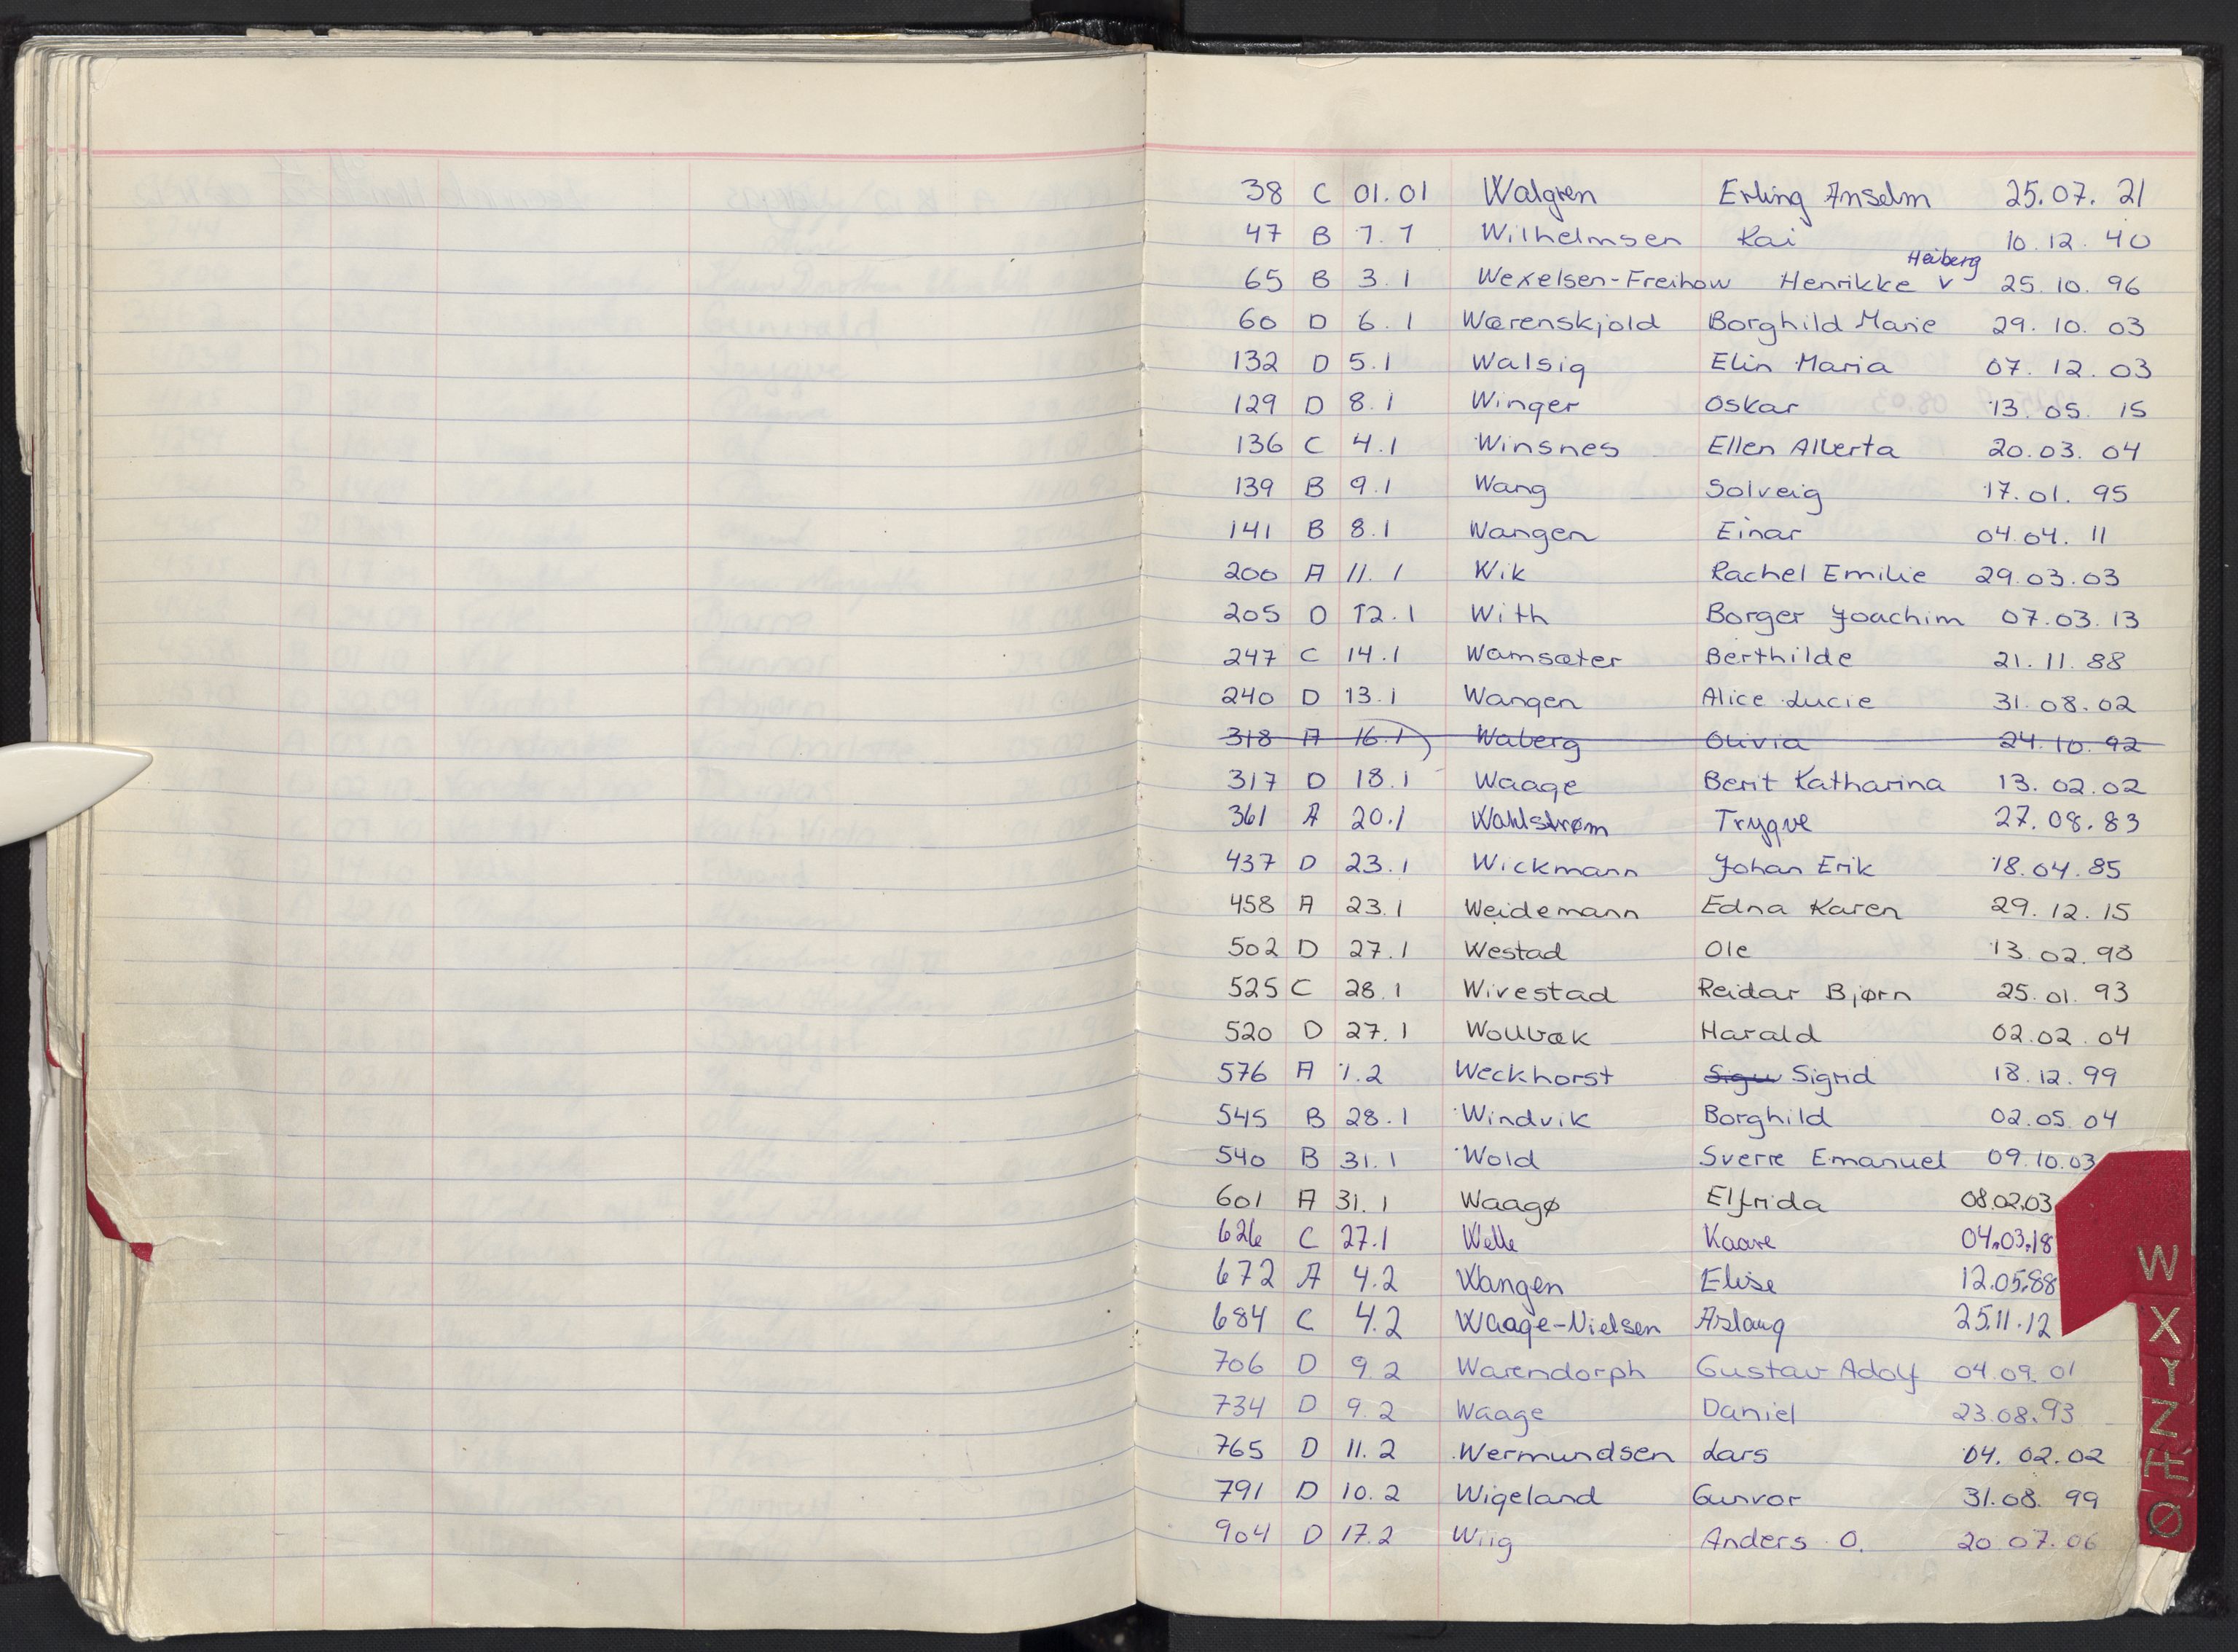 38 C 01.01 Walgren Erling Anselm 25.07.21
47 B 7.1 Wilhelmsen Kai 10.12.40
Heiberg
65 B 3.1 Wexelsen-Freihow Henrikke v 25.10.96
60 D 6.1 Wærenskjold Borghild Marie 29.10.03
132 D 5.1 Walsig Elin Maria 07.12.03
129 D 8.1 Winger Oskar 13.05.15
136 C 4.1 Winsnes Ellen Alberta 20.03.04
139 B 9.1 Wang Solveig 17.01.95
141 B 8.1 Wangen Einar 04.04.11
200 A 11.1 Wik Rachel Emilie 29.03.03
205 D 12.1 With Borger Joachim 07.03.13
247 C 14.1 Wamsæter Berthilde 21.11.88
240 D 13.1 Wangen Alice Lucie 31.08.02
318 A 16.1 Waberg Olivia 24.10.92
317 D 18.1 Waage Berit Katharina 13.02.02
361 A 20.1 Wahlstrøm Trygve 27.08.83
437 D 23.1 Wickmann Johan Erik 18.04.85
458 A 23.1 Weidemann Edna Karen 29.12.15
502 D 27.1 Westad Ole 13.02.98
525 C 28.1 Wivestad Reidar Bjørn 25.01.93
520 D 27.1 Wollbæk Harald 02.02.04
576 A 1.2 Weckhorst Sigu Sigrid 18.12.99
545 B 28.1 Windvik Borghild 02.05.04
540 B 31.1 Wold Sverre Emanuel 09.10.03
601 A 31.1 Waagø Elfrida 08.02.03
626 C 27.1 Welle Kaare 04.03.18
672 A 4.2 Wangen Elise 12.05.88
684 C 4.2 Waage-Nielsen Aslaug 25.11.12
706 D 9.2 Warendorph Gustav Adolf 04.09.01
734 D 9.2 Waage Daniel 23.08.93
765 D 11.2 Wermundsen Lars 04.02.02
791 D 10.2 Wigeland Gunvor 31.08.99
904 D 17.2 Wiig Anders O. 20.07.06
W
X
Y
Z
Æ
Ø